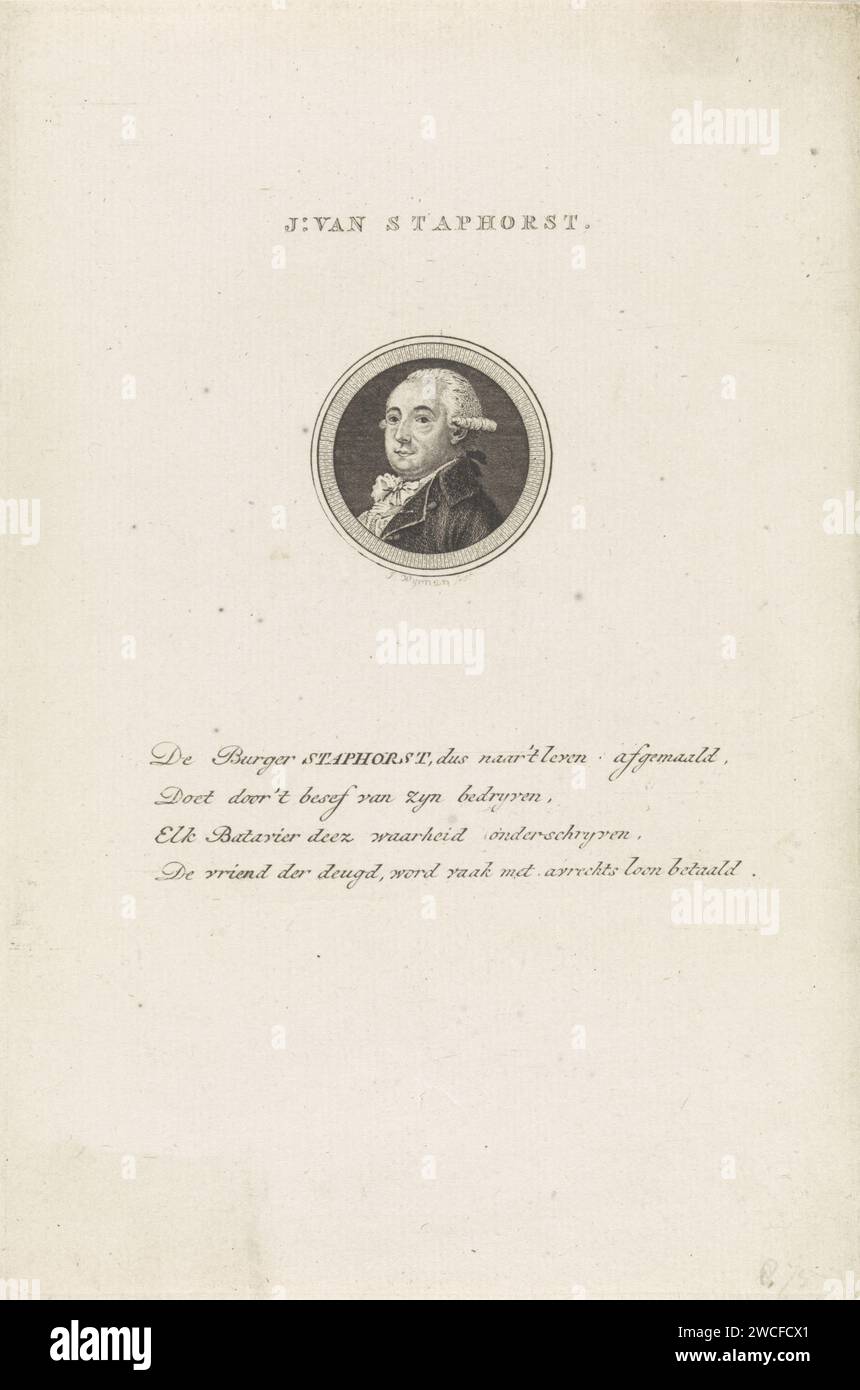 J: VAN STAPHORST.
J. Wijsman
De Burger STAPHORST, dus naar't leven afgemaald,
Doet door't besef van zyn bedryven,
Elk Batavier deez waarheid onderschryven,
De vriend der deugd, word vaak met avrechts loon betaald.
alamy
Image ID: 2WCFCX1
www.alamy.com